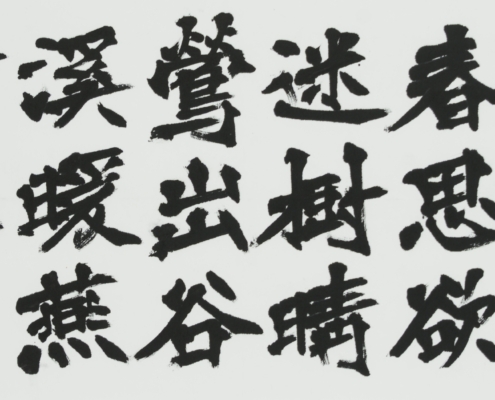 春思欲
迷樹晴
鶯出谷
溪暖燕